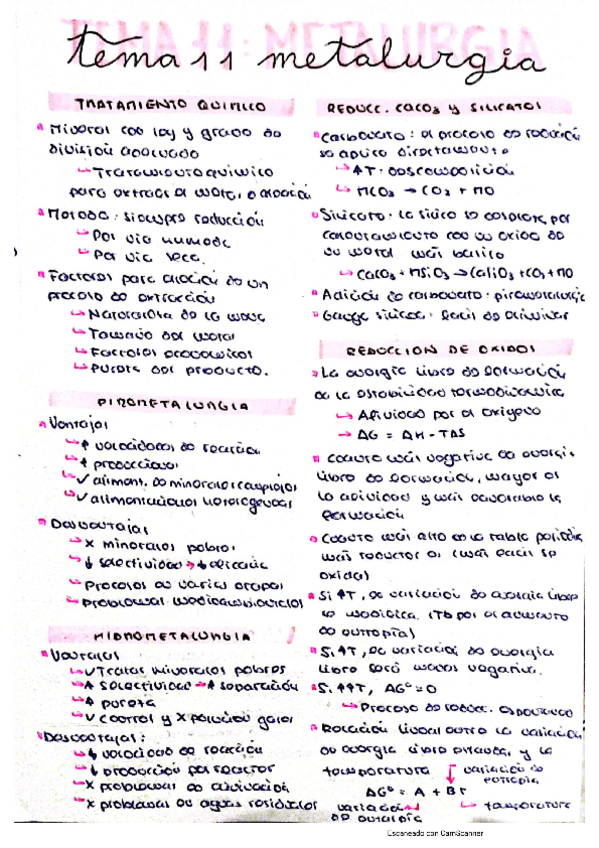 TEMA 11: METALURGIA
tema 11 metalurgia
TRATAMIENTO QUIMICO
Mineral con ley y grado de
división adecuado
↳ Tratamiento químico
para extraer el metal, o aleación
Metodo: siempre reducción
↳ Por via humeda
↳ Por via seca.
Factores para elección de un
proceso de extracción
↳ Naturaleza de la mena
↳ Tamaño del metal
↳ Factores economicos
↳ Pureza del producto.
PIROMETALURGIA
Ventajas
↳ ↑ velocidades de reacción
↳ ↑ producciones
↳ ✓ aliment. de minerales complejos
↳ ✓ alimentaciones heterogeneas
Desventajas
↳ X minerales pobres
↳ ↓ selectividad → ↓ eficacia
↳ Procesos en varias etapas
↳ Problemas medioambientales
HIDROMETALURGIA
Ventajas
↳ ✓ Tratar minerales pobres
↳ ↑ selectividad → ↑ separación
↳ ↑ pureza
↳ ✓ control y X polución gases
Desventajas:
↳ ↓ velocidad de reacción
↳ ↓ producción por reactor
↳ X problemas de
↳ X problemas en aguas residuales
REDUCC. CaCO3 y SILICATOS
Carbonato: el proceso de reducción
se aplica directamente
↳ ↑T: descomposición
↳ MCO3 → CO2 + MO
Silicato: la sílice se desplaza por
calentamiento con un oxido de
un metal más básico
↳ CaCO3 + MSiO3 → CaSiO3 + CO2 + MO
Adición de carbonato: pirometalurgia
Ganga silicea: facil de eliminar
REDUCCION DE OXIDOS
La energia libre de formación
da la estabilidad termodinámica
↳ Afinidad por el oxígeno
→ ΔG = ΔH - TΔS
Cuanto más negativa la energia
libre de formación, mayor es
la afinidad y más favorable la
formación
Cuanto más alto en la tabla periódica
más reductor es (más facil se
oxida)
Si ↑T, la variación de energia libre
se modifica. (Tb por el aumento
de entropia)
Si ↑T, la variación de energia
libre será menos negativa.
Si ↑↑T, ΔG° = 0
↳ Proceso de reducc. espontaneo
Relación lineal entre la variación
en energia libre estandar y la
temperatura
variación de
entropia
ΔG° = A + BT
variación
de entalpia
↳ temperatura
Escaneado con CamScanner